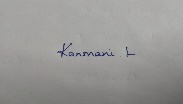 Kanmani. L